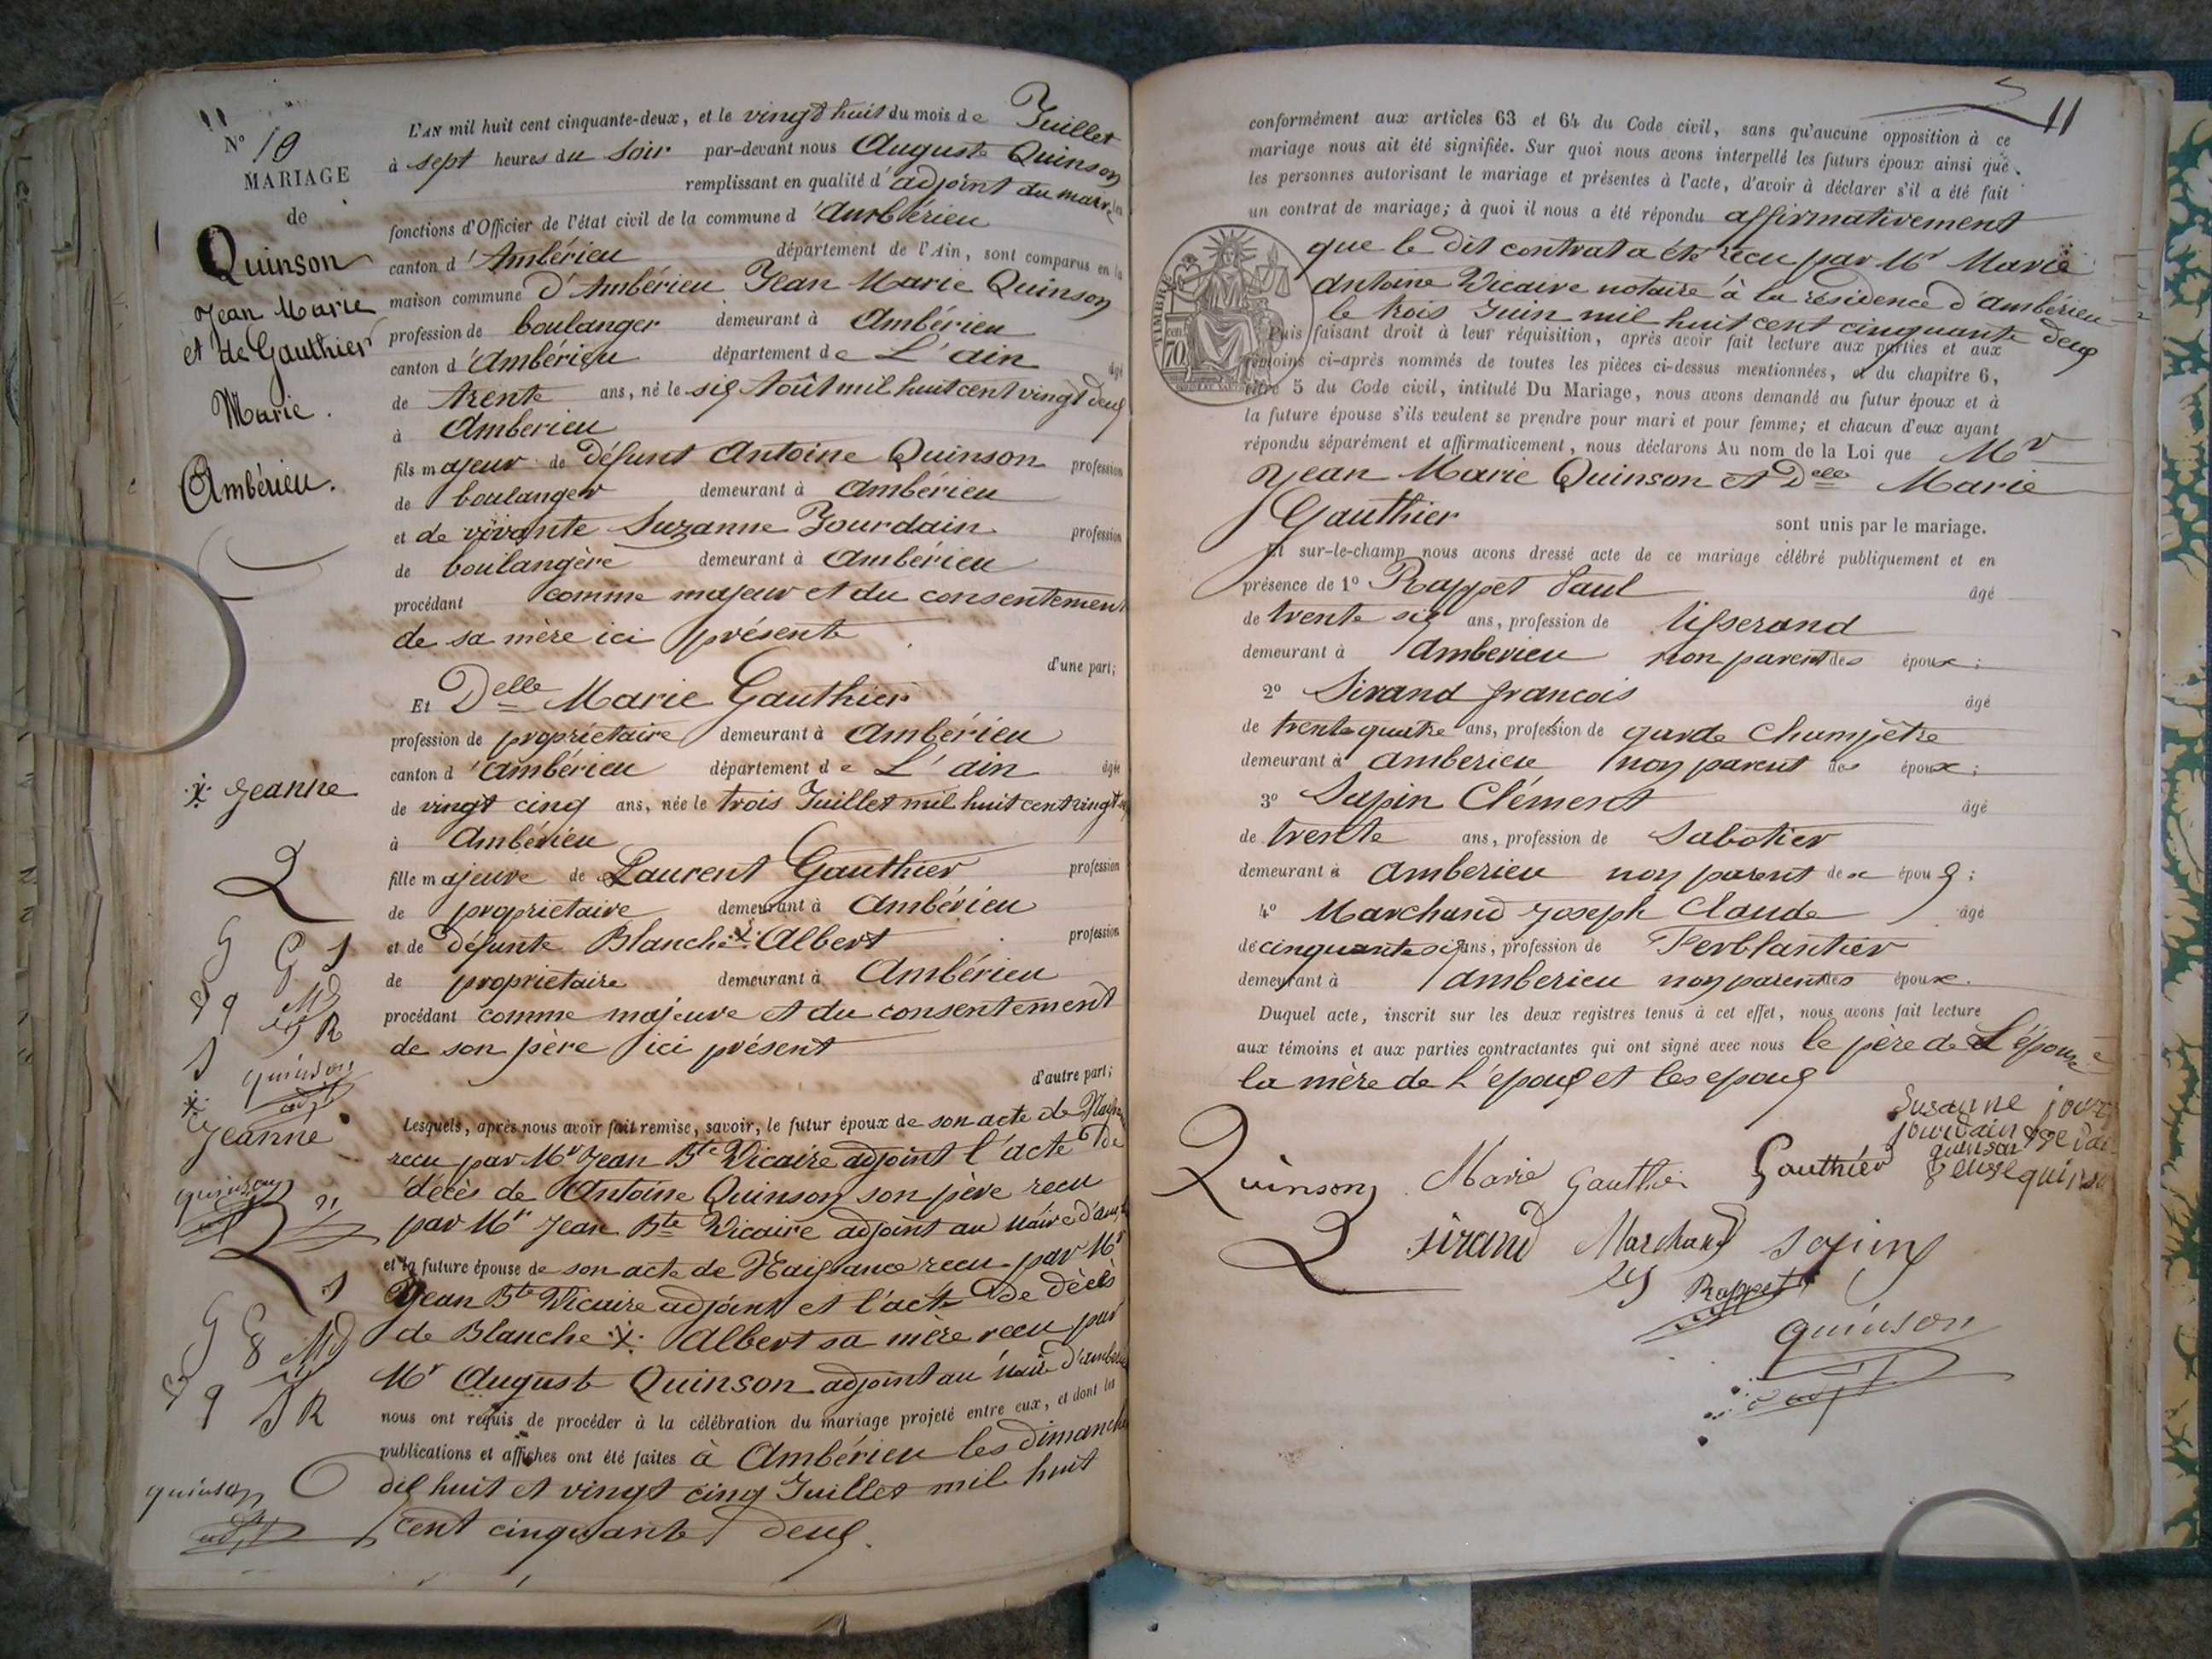 11
N° 10
MARIAGE
de
Quinson
Jean Marie
et de Gauthier
Marie.
Ambérieu.
L'AN mil huit cent cinquante-deux, et le vingt huit du mois de Juillet
à sept heures du Soir par-devant nous Auguste Quinson
remplissant en qualité d'adjoint du maire les
fonctions d'Officier de l'état civil de la commune d'Ambérieu
canton d'Ambérieu département de l'Ain, sont comparus en la
maison commune d'Ambérieu Jean Marie Quinson
profession de boulanger demeurant à Ambérieu
canton d'Ambérieu département de L'ain âgé
de trente ans, né le six Août mil huit cent vingt deux
à Amberieu
fils majeur de défunt Antoine Quinson profession
de boulanger demeurant à Ambérieu
et de vivante Suzanne Jourdain profession
de boulangère demeurant à Ambérieu
procédant comme majeur et du consentement
de sa mère ici présente
d'une part;
Et Delle Marie Gauthier
profession de propriétaire demeurant à Ambérieu
canton d'Ambérieu département de L'ain âgée
de vingt cinq ans, née le trois Juillet mil huit cent vingt
à Ambérieu
fille majeure de Laurent Gauthier profession
de propriétaire demeurant à Ambérieu
et de défunte Blanche x Albert profession
de propriétaire demeurant à Ambérieu
procédant comme majeure et du consentement
de son père ici présent
d'autre part;
Lesquels, après nous avoir fait remise, savoir, le futur époux de son acte de
recu par Mr Jean Bte Vicaire adjoint l'acte de
décès de Antoine Quinson son père recu
par Mr Jean Bte Vicaire adjoint au Maire
et la future épouse de son acte de Naissance recu par Mr
Jean Bte Vicaire adjoint et l'acte de décès
de Blanche x Albert sa mère recu par
Mr Auguste Quinson adjoint au maire d'ambérieu
nous ont requis de procéder à la célébration du mariage projeté entre eux, et dont les
publications et affiches ont été faites à Ambérieu les dimanche
dix huit et vingt cinq Juillet mil huit
cent cinquante deux.
x Jeanne
G G J
Md
R
quinson
adjt
x
Jeanne
quinson
G Md
J R
quinson
adjt
11
conformément aux articles 63 et 64 du Code civil, sans qu'aucune opposition à ce
mariage nous ait été signifiée. Sur quoi nous avons interpellé les futurs époux ainsi que
les personnes autorisant le mariage et présentes à l'acte, d'avoir à déclarer s'il a été fait
un contrat de mariage; à quoi il nous a été répondu affirmativement
que le dit contrat a été recu par Mr Marie
Antoine Vicaire notaire à la résidence d'ambérieu
le trois Juin mil huit cent cinquante deux
TIMBRE
70
Puis faisant droit à leur réquisition, après avoir fait lecture aux parties et aux
témoins ci-après nommés de toutes les pièces ci-dessus mentionnées, et du chapitre 6,
titre 5 du Code civil, intitulé Du Mariage, nous avons demandé au futur époux et à
la future épouse s'ils veulent se prendre pour mari et pour femme; et chacun d'eux ayant
répondu séparément et affirmativement, nous déclarons Au nom de la Loi que Mr
Jean Marie Quinson et Delle Marie
Gauthier sont unis par le mariage.
Et sur-le-champ nous avons dressé acte de ce mariage célébré publiquement et en
présence de 1° Rappet Paul âgé
de trente six ans, profession de tisserand
demeurant à Amberieu non parent des époux;
2° Sirand francois âgé
de trente quatre ans, profession de garde Champêtre
demeurant à amberieu non parent des époux;
3° Sapin Clément âgé
de trente ans, profession de Sabotier
demeurant à Amberieu non parent des époux;
4° Marchand Joseph Claude âgé
de cinquante six ans, profession de Ferblantier
demeurant à Amberieu non parent des époux.
Duquel acte, inscrit sur les deux registres tenus à cet effet, nous avons fait lecture
aux témoins et aux parties contractantes qui ont signé avec nous le père de L'épouse
la mère de L'epoux et les epoux
Susanne
jourdain
Quinson Marie Gauthier Gauthier
Sirand Marchand sapin
Rappet
quinson
adjt